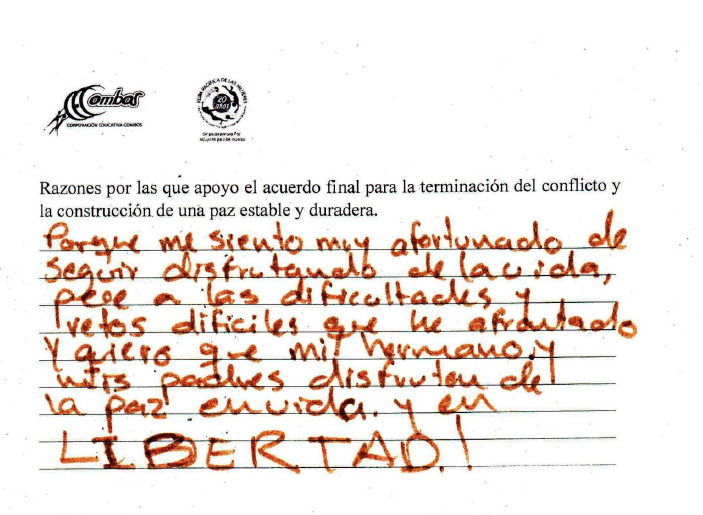 Combos
CORPORACIÓN EDUCATIVA COMBOS
RUTA PACIFICA DE LAS MUJERES
20
años
Razones por las que apoyo el acuerdo final para la terminación del conflicto y
la construcción de una paz estable y duradera.
Porque me siento muy afortunado de
seguir disfrutando de la vida,
pese a las dificultades y
retos dificiles que he afrontado
Y quiero que mi hermano y
mis padres disfruten de
la paz en vida. y en
LIBERTAD!